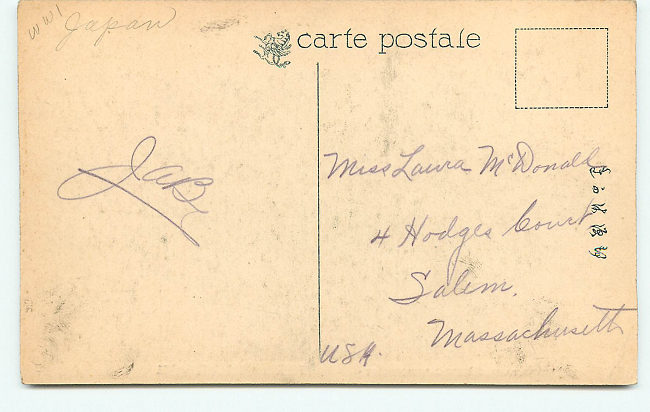 WW1
Japan
carte postale
JABy
Miss Laura McDonald
4 Hodges Court
Salem.
Massachusetts
USA.
きかは便郵